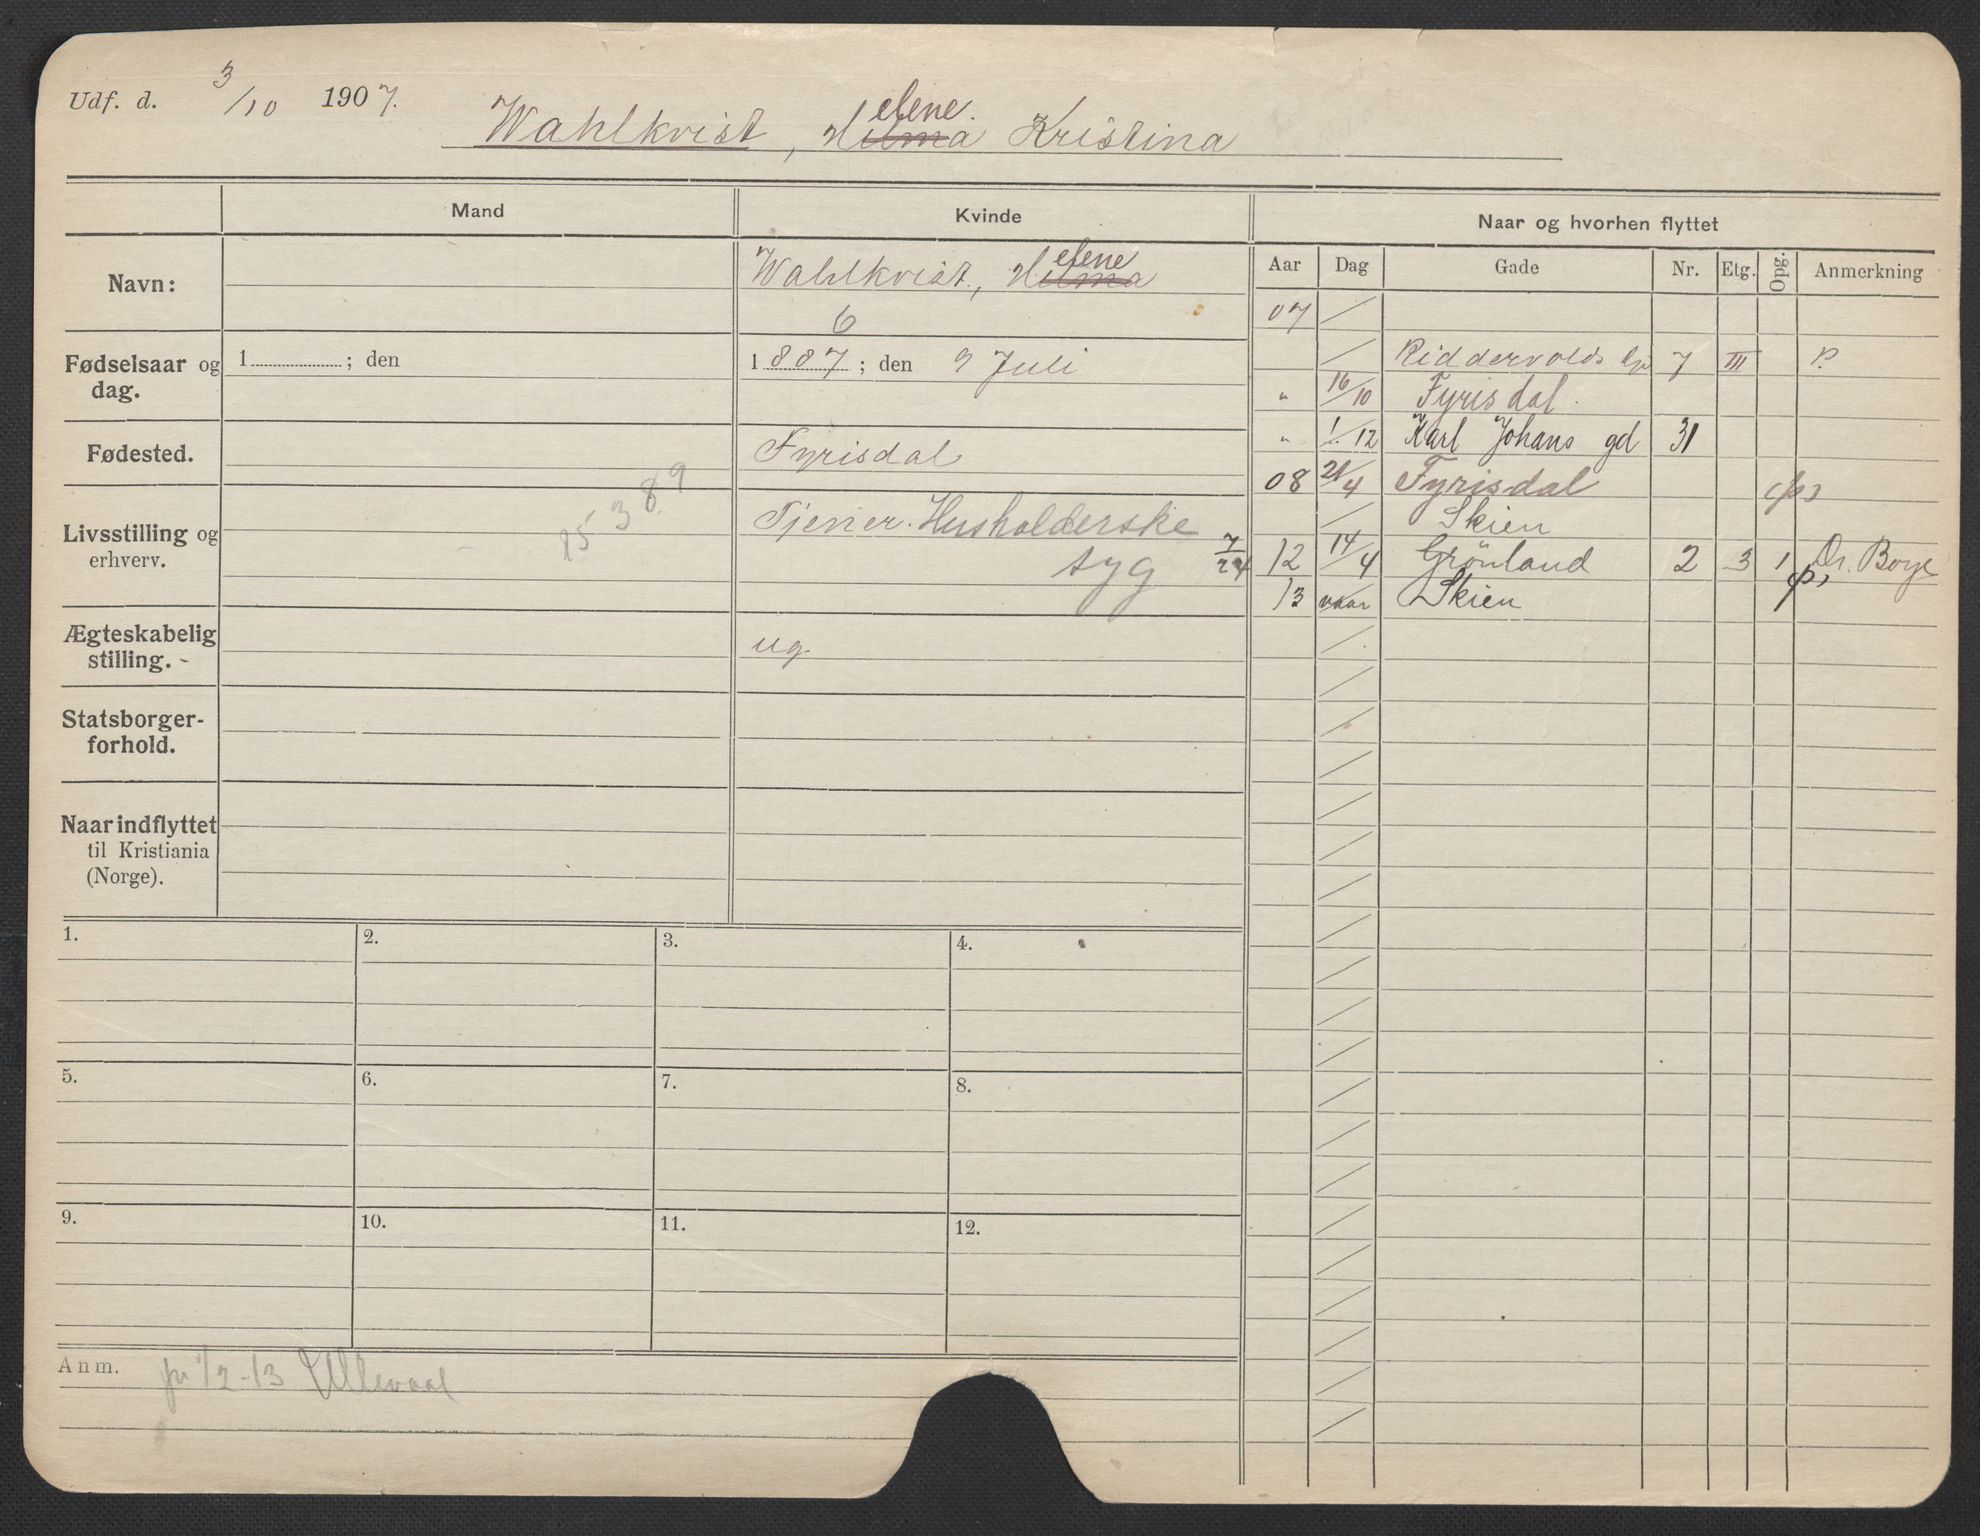 Udf. d. 3/10 1907.
Wahlkvist, Hilma elene. Kristina
Mand
Kvinde
Naar og hvorhen flyttet
Aar Dag Gade Nr. Etg. Opg. Anmerkning
Navn:
Wahlkvist, Hilma elene
6
Fødselsaar og dag.
1 ; den
1 887 ; den 9 Juli
Fødested.
Fyrisdal
Livsstilling og erhverv.
25 3 89
Tjener. Husholderske
syg 7/24
Ægteskabelig stilling.
ug
Statsborgerforhold.
Naar indflyttet
til Kristiania
(Norge).
07 /
/ Riddervolds 7 III P.
" 16/10 Fyrisdal.
" 1/12 Karl Johans gd 31
08 21/4 Fyrisdal
/ Skien
12 14/4 Grönland 2 3 1 Dr. Boye
13 vaar Skien
1. 2. 3. 4.
5. 6. 7. 8.
9. 10. 11. 12.
Anm. 1/2-13 Ullevaal